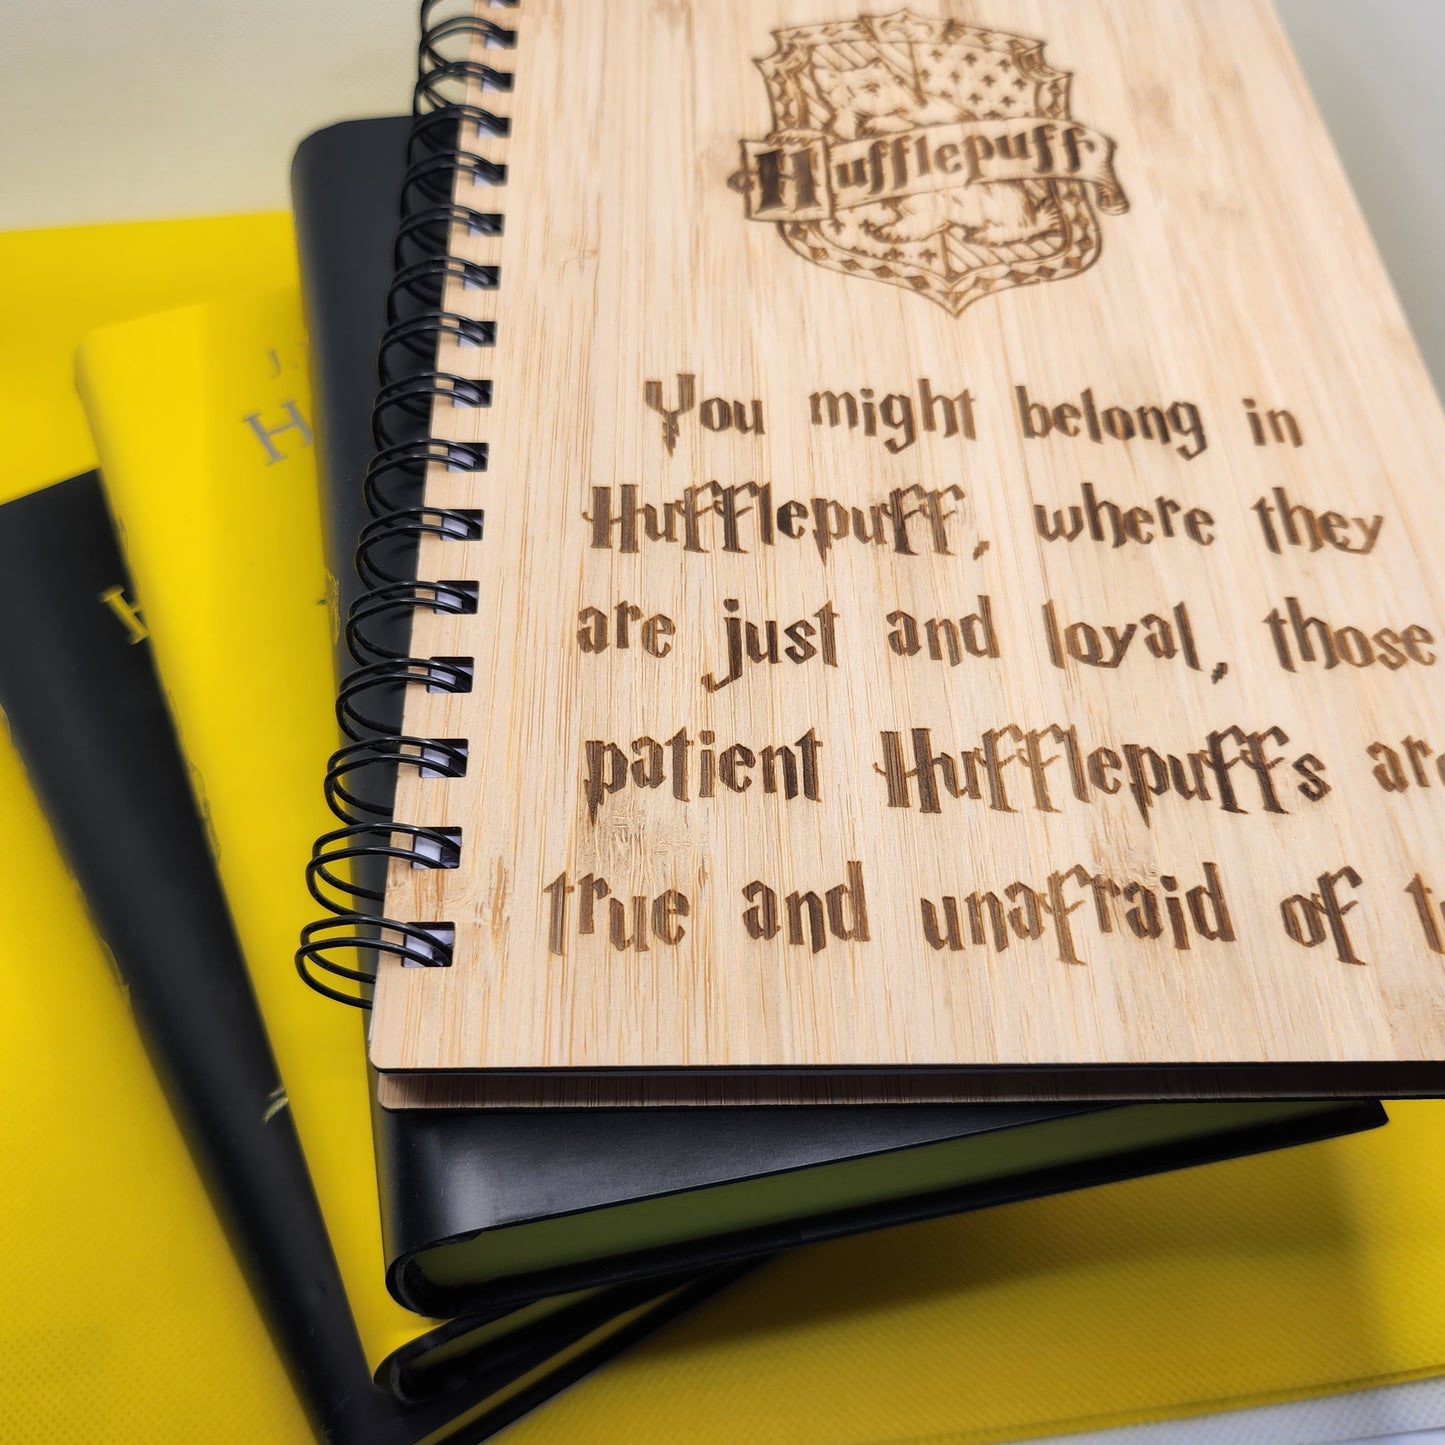 Hufflepuff
You might belong in
Hufflepuff, where they
are just and loyal, those
patient Hufflepuffs are
true and unafraid of
J.
H
H